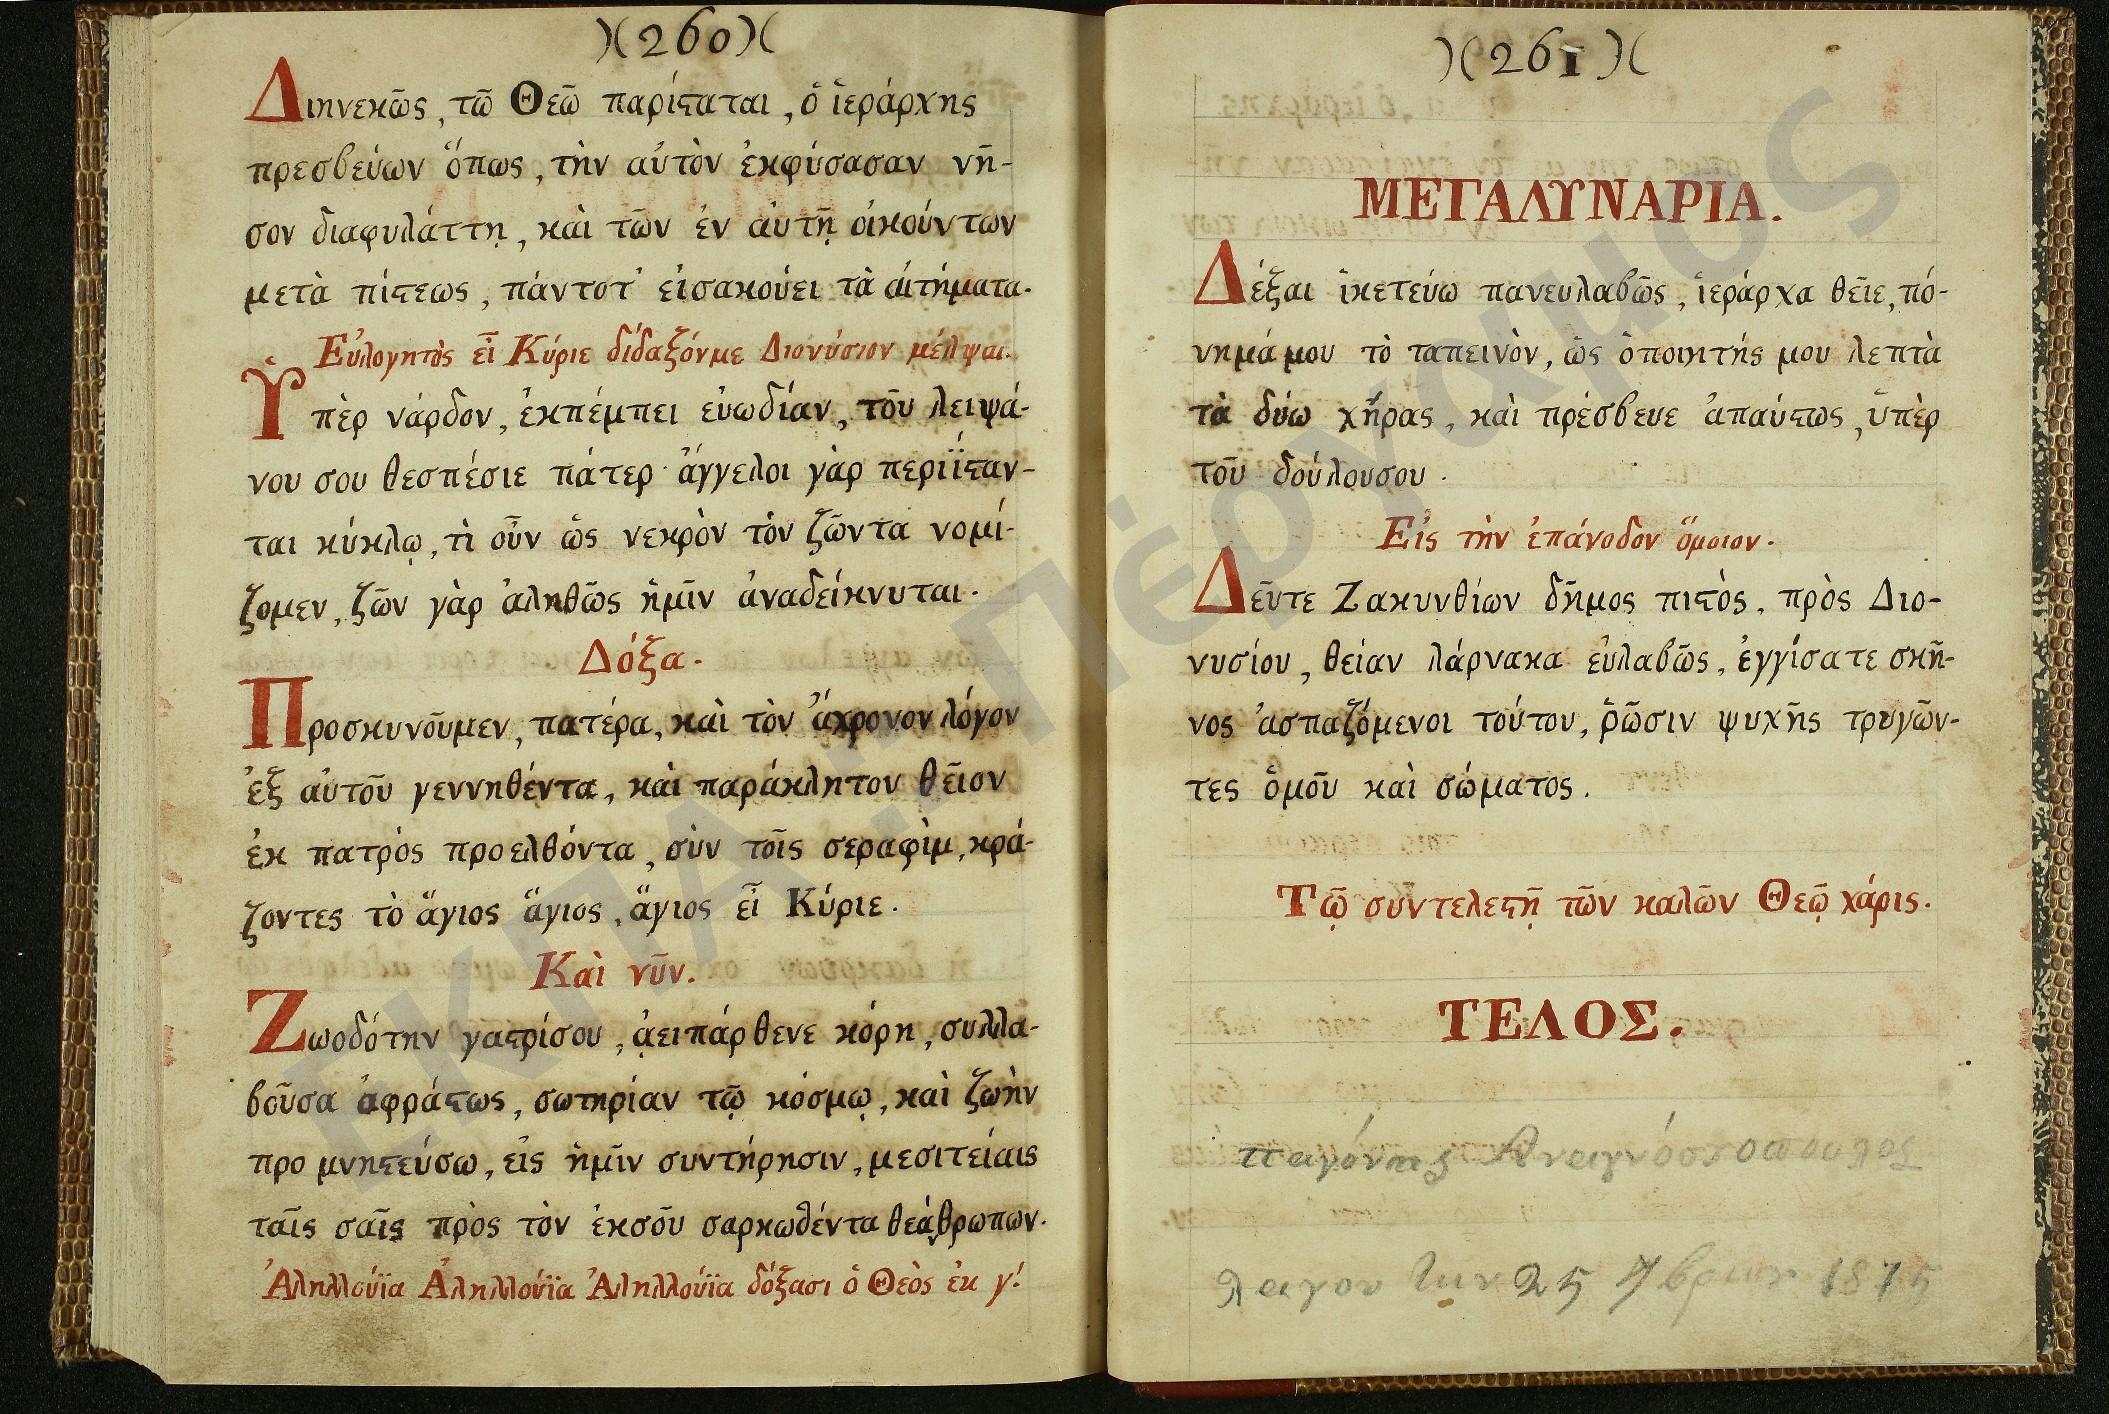 )(260)(
Διηνεκῶς, τῶ Θεῶ παρίϛαται, ὁ ἱεράρχης
πρεσβεύων ὅπως, τὴν αὐτὸν ἐκφύσασαν νῆ-
σον διαφυλάττῃ, καὶ τῶν ἐν αὐτῇ οἰκούντων
μετὰ πίϛεως, πάντοτ' εἰσακούει τὰ αἰτήματα.
Εὐλογητὸς εἶ Κύριε δίδαξόνμε Διονύσιον μέλψαι.
Ὑπὲρ νάρδον, ἐκπέμπει εὐωδίαν, τοῦ λειψά-
νου σου θεσπέσιε πάτερ· ἄγγελοι γὰρ περιΐϛαν-
ται κύκλῳ, τὶ οὖν ὡς νεκρὸν τὸν ζῶντα νομί-
ζομεν, ζῶν γὰρ ἀληθῶς ἡμῖν ἀναδείκνυται.
Δόξα.
Προσκυνοῦμεν, πατέρα, καὶ τὸν ἄχρονον λόγον
ἐξ αὐτοῦ γεννηθέντα, καὶ παράκλητον θεῖον
ἐκ πατρὸς προελθόντα, σὺν τοῖς σεραφὶμ, κρά-
ζοντες τὸ ἅγιος ἅγιος, ἅγιος εἶ Κύριε.
Καὶ νῦν.
Ζωοδότην γαϛρίσου, ἀειπάρθενε κόρη, συλλα-
βοῦσα ἀφράϛως, σωτηρίαν τῷ κόσμῳ, καὶ ζωὴν
προμνηϛεύσω, εἰς ἡμῖν συντήρησιν, μεσιτείαις
ταῖς σαῖς πρὸς τὸν ἐκσοῦ σαρκωθέντα θεάνθρωπων.
Ἀληλλούϊα Ἀληλλούϊα Ἀληλλούϊα δόξασι ὁ Θεὸς ἐκ γ΄.
)(261)(
ΜΕΓΑΛΥΝΑΡΙΑ.
Δέξαι ἱκετεύω πανευλαβῶς, ἱεράρχα θεῖε, πό-
νημά μου τὸ ταπεινὸν, ὡς ὁ ποιητής μου λεπτὰ
τὰ δύω χήρας, καὶ πρέσβευε ἀπαύϛως, ὑπὲρ
τοῦ δούλουσου.
Εἰς τὴν ἐπάνοδον ὅμοιον.
Δεῦτε Ζακυνθίων δῆμος πιϛὸς, πρὸς Διο-
νυσίου, θείαν λάρνακα εὐλαβῶς, ἐγγίσατε σκῆ-
νος ἀσπαζόμενοι τούτου, ῥῶσιν ψυχῆς τρυγῶν-
τες ὁμοῦ καὶ σώματος.
Τῷ συντελεϛῇ τῶν καλῶν Θεῷ χάρις.
ΤΕΛΟΣ.
Αναγνόστοπουλος
25 7βριου 1875
ΕΚΠΑ: Πέργαμος